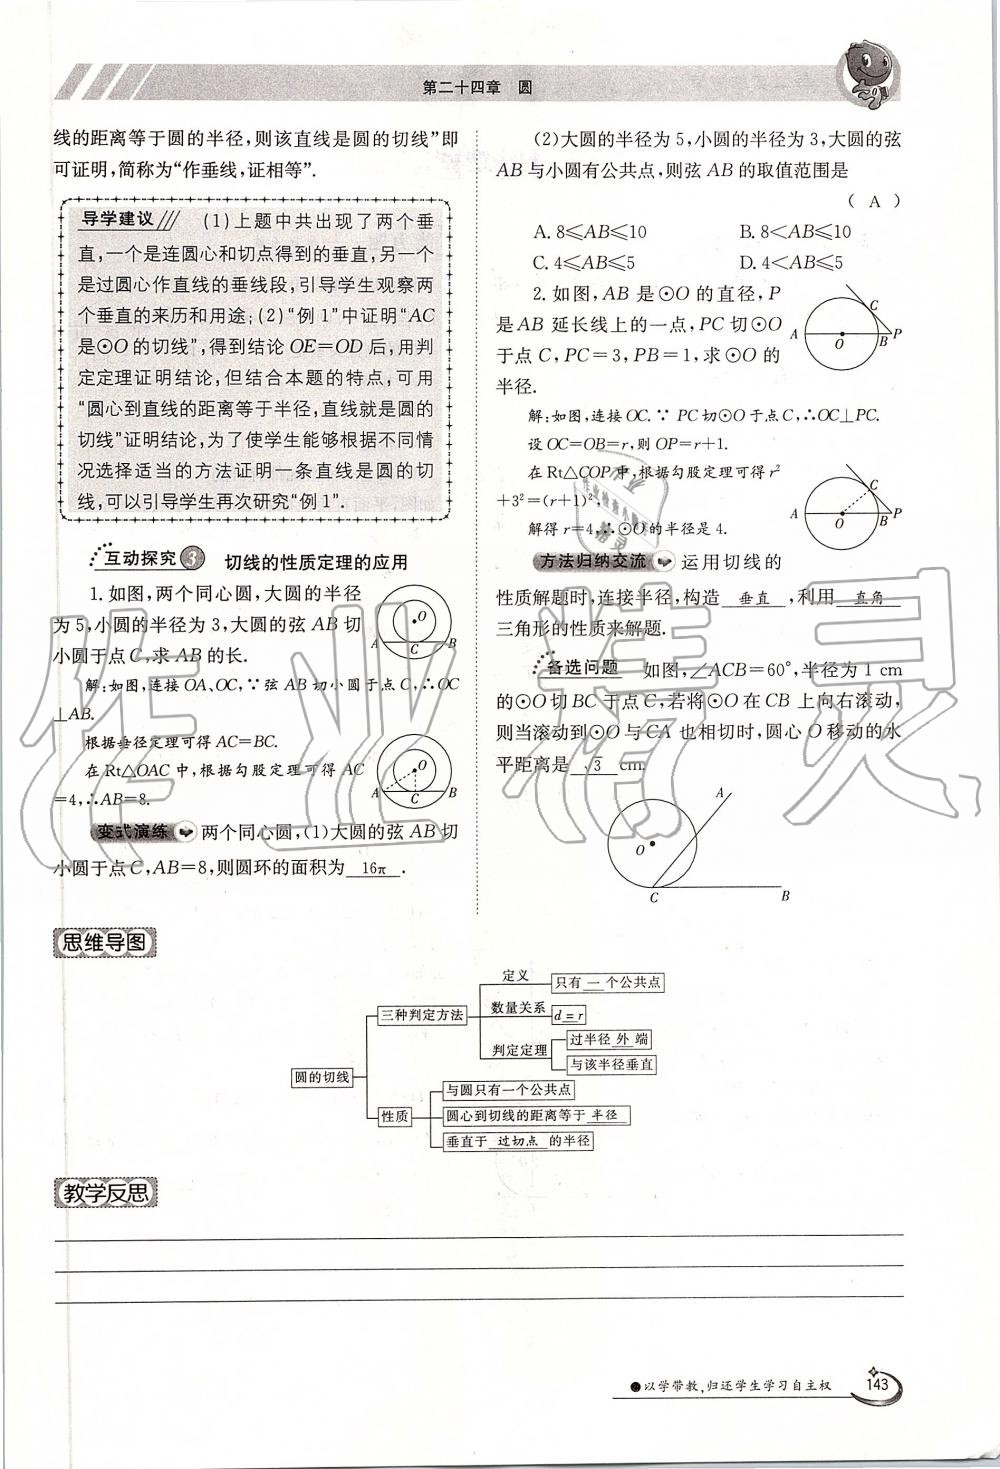 第二十四章　圆
线的距离等于圆的半径,则该直线是圆的切线”即
可证明,简称为“作垂线,证相等”.
导学建议 (1)上题中共出现了两个垂
直,一个是连圆心和切点得到的垂直,另一个
是过圆心作直线的垂线段,引导学生观察两
个垂直的来历和用途;(2)“例1”中证明“AC
是⊙O的切线”,得到结论OE=OD后,用判
定定理证明结论,但结合本题的特点,可用
“圆心到直线的距离等于半径,直线就是圆的
切线”证明结论,为了使学生能够根据不同情
况选择适当的方法证明一条直线是圆的切
线,可以引导学生再次研究“例1”.
互动探究3 切线的性质定理的应用
1.如图,两个同心圆,大圆的半径
为5,小圆的半径为3,大圆的弦AB切
小圆于点C,求AB的长.
O
A C B
解:如图,连接OA、OC,∵弦AB切小圆于点C,∴OC
⊥AB.
根据垂径定理可得AC=BC.
在Rt△OAC中,根据勾股定理可得AC
=4,∴AB=8.
O
A C B
变式演练 两个同心圆,(1)大圆的弦AB切
小圆于点C,AB=8,则圆环的面积为 16π .
(2)大圆的半径为5,小圆的半径为3,大圆的弦
AB与小圆有公共点,则弦AB的取值范围是
( A )
A. 8≤AB≤10 B. 8<AB≤10
C. 4≤AB≤5 D. 4<AB≤5
2.如图,AB是⊙O的直径,P
是AB延长线上的一点,PC切⊙O
于点C,PC=3,PB=1,求⊙O的
半径.
C
A O B P
解:如图,连接OC.∵PC切⊙O于点C,∴OC⊥PC.
设OC=OB=r,则OP=r+1.
在Rt△COP中,根据勾股定理可得r²
+3²=(r+1)²,
解得r=4,∴⊙O的半径是4.
C
A O B P
方法归纳交流 运用切线的
性质解题时,连接半径,构造 垂直 ,利用 直角
三角形的性质来解题.
备选问题 如图,∠ACB=60°,半径为1 cm
的⊙O切BC于点C,若将⊙O在CB上向右滚动,
则当滚动到⊙O与CA也相切时,圆心O移动的水
平距离是 √3 cm.
A
O
C B
思维导图
圆的切线
三种判定方法
定义
只有 一 个公共点
数量关系
d=r
判定定理
过半径 外 端
与该半径垂直
性质
与圆只有一个公共点
圆心到切线的距离等于 半径
垂直于 过切点 的半径
教学反思
●以学带教,归还学生学习自主权
143
作业精灵